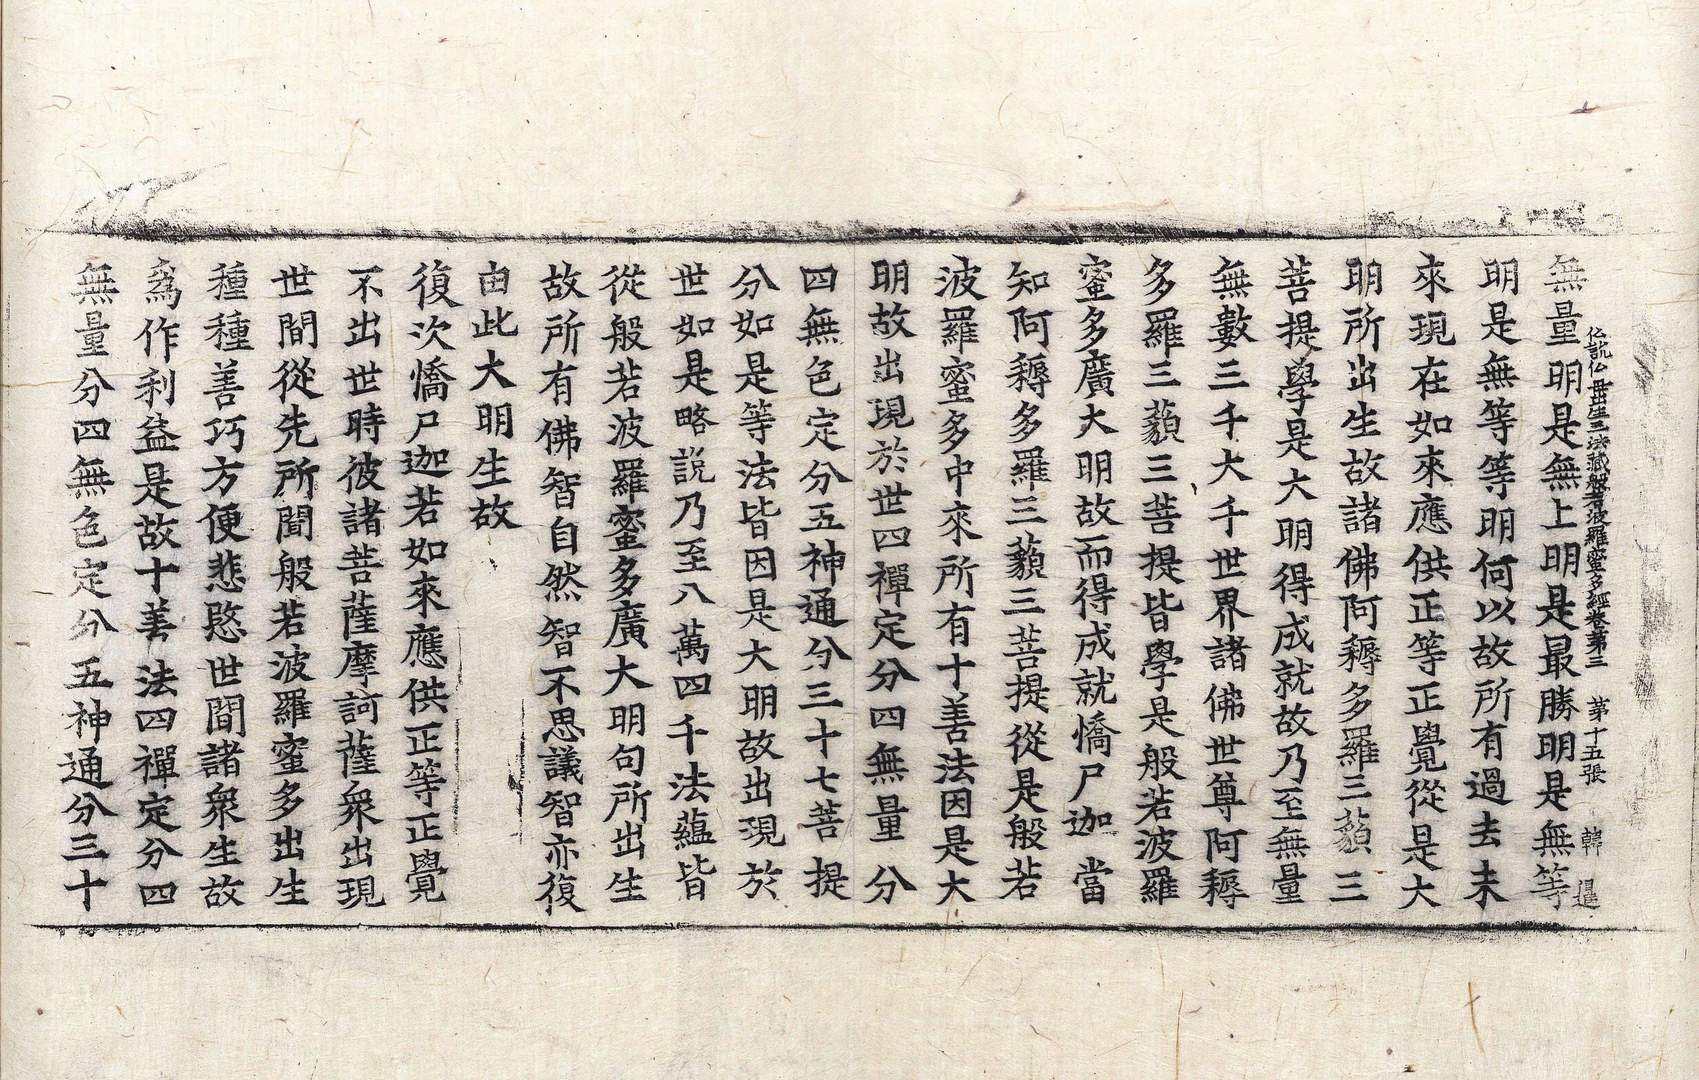 佛說佛母出生三法藏般若波羅蜜多經卷第三 第十五張 韓
無量明是無上明是最勝明是無等
明是無等等明何以故所有過去未
來現在如來應供正等正覺從是大
明所出生故諸佛阿耨多羅三藐三
菩提學是大明得成就故乃至無量
無數三千大千世界諸佛世尊阿耨
多羅三藐三菩提皆學是般若波羅
蜜多廣大明故而得成就憍尸迦當
知阿耨多羅三藐三菩提從是般若
波羅蜜多中來所有十善法因是大
明故出現於世四禪定分四無量分
四無色定分五神通分三十七菩提
分如是等法皆因是大明故出現於
世如是略說乃至八萬四千法蘊皆
從般若波羅蜜多廣大明句所出生
故所有佛智自然智不思議智亦復
由此大明生故
復次憍尸迦若如來應供正等正覺
不出世時彼諸菩薩摩訶薩衆出現
世間從先所聞般若波羅蜜多出生
種種善巧方便悲愍世間諸衆生故
爲作利益是故十善法四禪定分四
無量分四無色定分五神通分三十